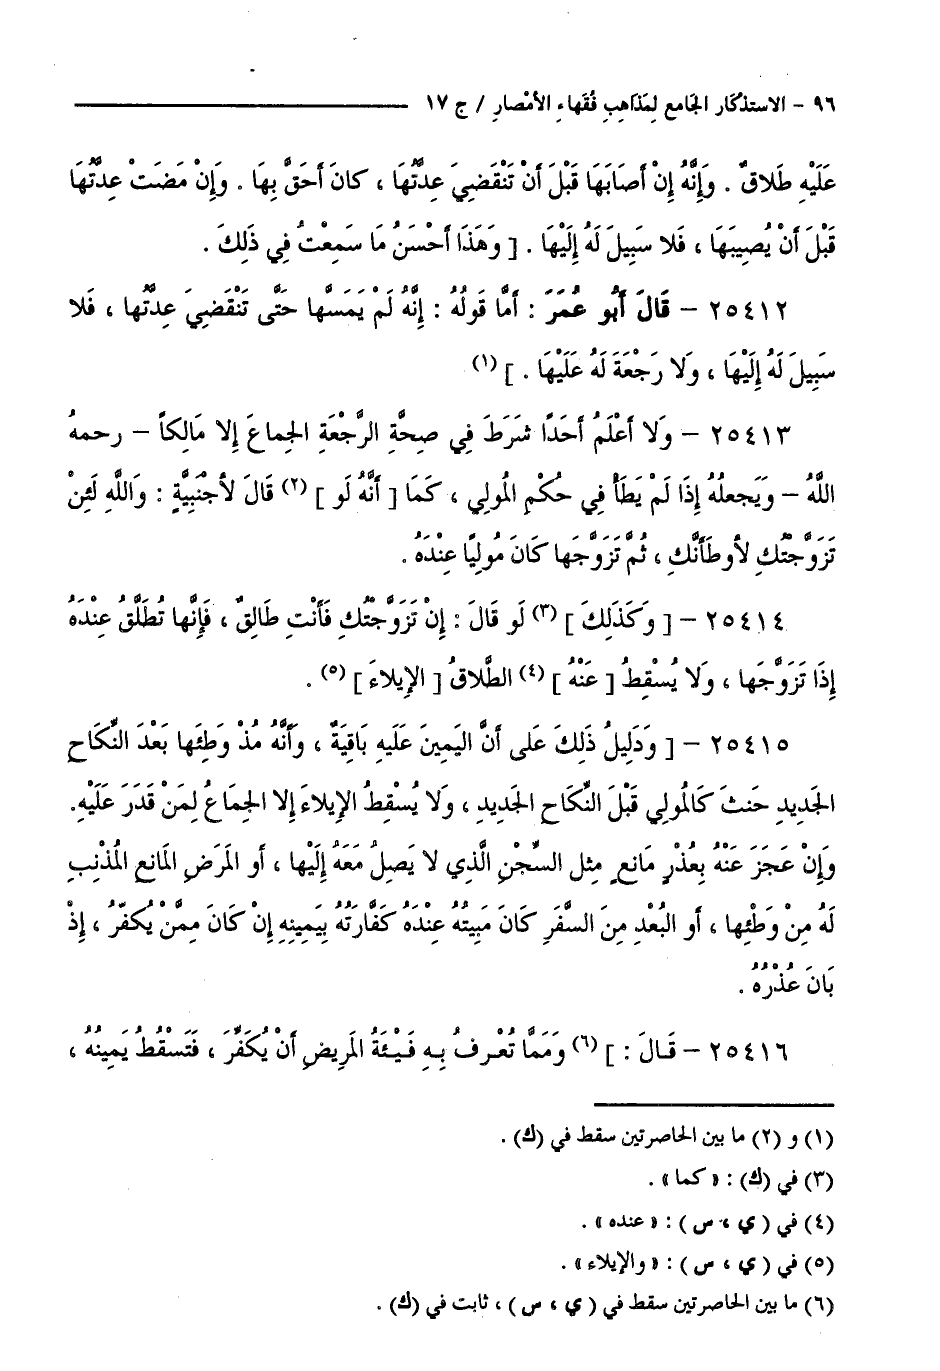 ٩٦ - الاستذكار الجامع لمذاهب فقهاء الأمصار / ج ١٧
عَلَيْهِ طَلاقٌ . وَإِنَّهُ إِنْ أَصَابَهَا قَبْلَ أَنْ تَنْقَضِيَ عِدَّتُهَا ، كانَ أَحَقَّ بِهَا . وَإِنْ مَضَتْ عِدَّتُهَا
قَبْلَ أَنْ يُصِيبَهَا ، فَلا سَبِيلَ لَهُ إِلَيْهَا . [ وَهَذَا أَحْسَنُ مَا سَمِعْتُ فِي ذَلِكَ .
٢٥٤١٢ – قَالَ أَبُو عُمَرَ : أَمَّا قَولُهُ : إِنَّهُ لَمْ يَمَسَّها حَتَّى تَنْقَضِيَ عِدَّتُها ، فَلا
سَبِيلَ لَهُ إِلَيْهَا ، وَلا رَجْعَةَ لَهُ عَلَيْهَا . ] (١)
٢٥٤١٣ – وَلا أَعْلَمُ أَحَدًا شَرَطَ فِي صِحَّةِ الرَّجْعَةِ الجِماعَ إِلا مَالِكاً – رحمهُ
اللَّهُ – وَيَجعلُهُ إِذَا لَمْ يَطَأْ فِي حُكْمِ المُولِي ، كَمَا [ أَنَّهُ لَو ] (٢) قَالَ لأَجْنَبِيَّةٍ : وَاللَّهِ لَئِنْ
تَزَوَّجْتُكِ لأوطَأَنَّكِ ، ثُمَّ تَزَوَّجَها كَانَ مُولِيًا عِنْدَهُ .
٢٥٤١٤ – [ وَكَذَلِكَ ] (٣) لَو قَالَ : إِنْ تَزَوَّجْتُكِ فَأَنْتِ طَالِقٌ ، فَإِنَّها تُطَلَّقُ عِنْدَهُ
إِذَا تَزَوَّجَها ، وَلا يُسْقِطُ [ عَنْهُ ] (٤) الطَّلاقُ [ الإِيلاءَ ] (٥) .
٢٥٤١٥ – [ وَدَلِيلُ ذَلِكَ عَلى أَنَّ اليَمِينَ عَلَيهِ بَاقِيَةٌ ، وَأَنَّهُ مُذْ وَطِئَها بَعْدَ النِّكَاحِ
الجَدِيدِ حَنثَ كَالمُولِي قَبْلَ النِّكَاحِ الجَدِيدِ ، وَلا يُسْقِطُ الإِيلاءَ إِلا الجِمَاعُ لِمَنْ قَدَرَ عَلَيْهِ.
وَإِنْ عَجَزَ عَنْهُ بِعُذْرٍ مَانعٍ مِثلِ السِّجْنِ الَّذِي لا يَصِلُ مَعَهُ إِلَيْها ، أو المَرَضِ المَانعِ المُذْنِبِ
لَهُ مِنْ وَطْئِها ، أو البُعْدِ مِنَ السَّفَرِ كَانَ مَبِيتُهُ عِنْدَهُ كَفَّارَتُهُ بِيَمِينِهِ إِنْ كَانَ مِمَّنْ يُكفّر ، إِذْ
بَانَ عُذْرُهُ .
٢٥٤١٦ – قَـالَ : ] (٦) وَمَمَّا تُعْـرفُ بِـهِ فَـيْـئَةُ المَرِيضِ أَنْ يُكَفِّرَ ، فَتَسْقطُ يَمِينُهُ ،
(١) و (٢) ما بين الحاصرتين سقط في (ك) .
(٣) في (ك) : « كما » .
(٤) في ( ي ، س ) : « عنده » .
(٥) في ( ي ، س ) : « والإيلاء » .
(٦) ما بين الحاصرتين سقط في ( ي ، س ) ، ثابت في (ك) .